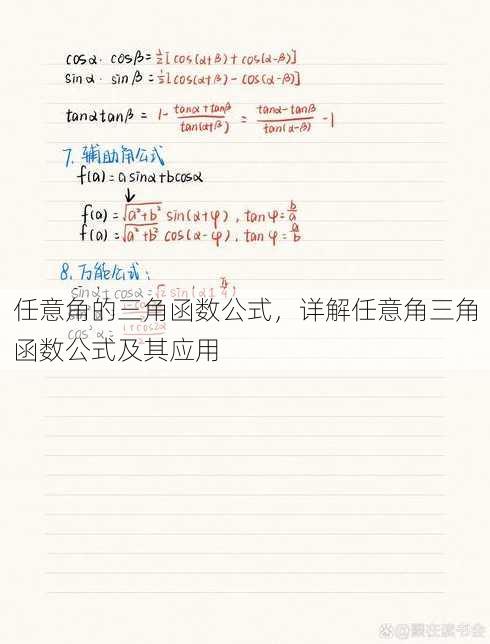 cosα·cosβ=½[cos(α+β)+cos(α-β)]
sinα·sinβ=½[cos(α+β)-cos(α-β)]
tanαtanβ = 1-\frac{tanα+tanβ}{tan(α+β)} = \frac{tanα-tanβ}{tan(α-β)} -1
7. 辅助角公式
f(a)=asinα+bcosα
↓
f(a)=√(a²+b²) sin(α+φ), tanφ=\frac{b}{a}
f(a)=√(a²+b²) cos(α-φ), tanφ=\frac{a}{b}
8. 万能公式:
sinα±cosα=√2 sin(α±\frac{π}{4})
任意角的三角函数公式，详解任意角三角
函数公式及其应用
cos²α=\frac{1+cos2α}{2}